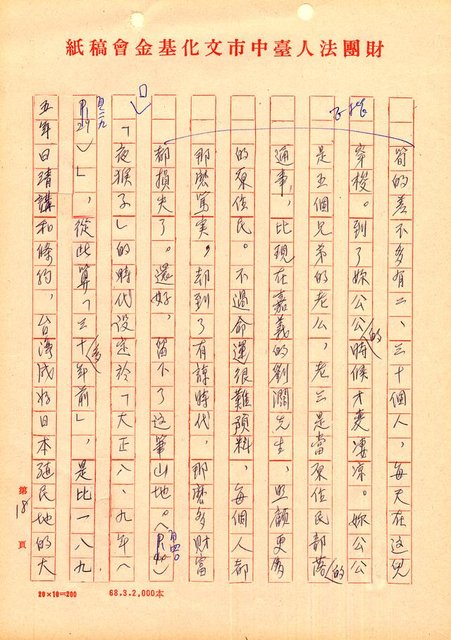 財團法人臺中市文化基金會稿紙
筒的差不多有二、三十個人，每天在這兒
穿梭。到了妳公公的時候才變淒凉。妳公公
是五個兄弟的老么，老三是當原住民部落的
通事，比現在嘉義的劉濶先生，照顧更多
的原住民。不過命運很難預料，每個人都
那麼篤實，却到了有諒時代，那麼多財富
都損失了。還好，留不了這筆山地。（P.40）
「夜猴子」的時代設定於「大正八、九年（
P.29）」，從此算「三十多年前」，是比一八九
五年日清講和條約，台灣成為日本殖民地的大
第18頁
20×10=200
68.3.2,000本